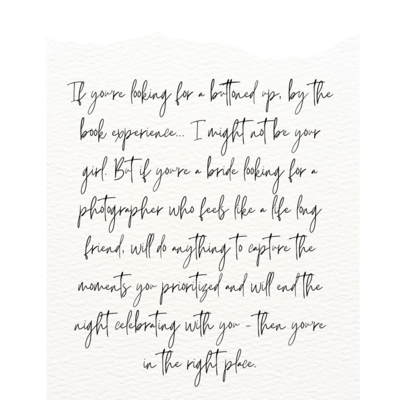 If you're looking for a buttoned up, by the
book experience... I might not be your
girl. But if you're a bride looking for a
photographer who feels like a life long
friend, will do anything to capture the
moments you prioritized and will end the
night celebrating with you - then you're
in the right place.